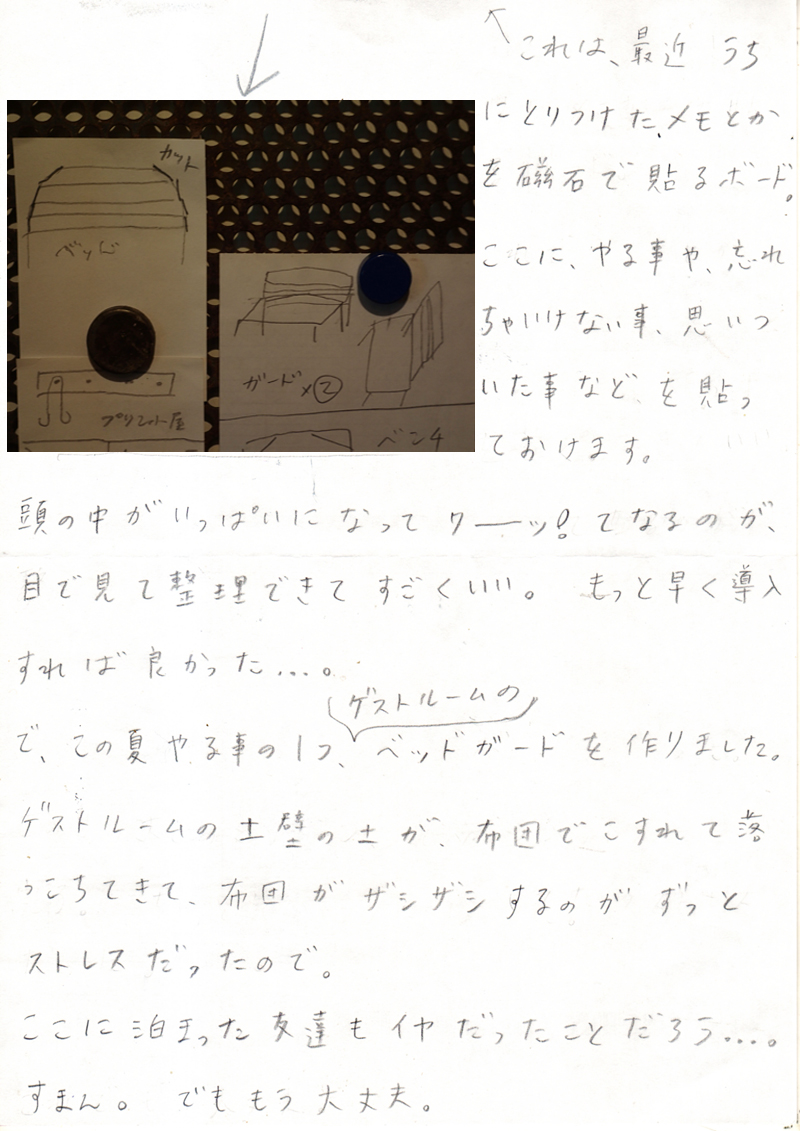 これは、最近 うち
にとりつけた、メモとか
を磁石で貼るボード。
ここに、やる事や、忘れ
ちゃいけない事、思いつ
いた事など を貼っ
ておけます。
カット
ベッド
ガード×②
プリント屋
ベンチ
頭の中がいっぱいになってワーッ!てなるのが、
目で見て整理できてすごくいい。 もっと早く導入
すれば良かった…。
ゲストルームの
で、この夏やる事の1つ、ベッドガードを作りました。
ゲストルームの土壁の土が、布団でこすれて落
っこちてきて、布団がザシザシするのがずっと
ストレスだったので。
ここに泊まった友達もイヤだったことだろう…。
すまん。 でももう大丈夫。